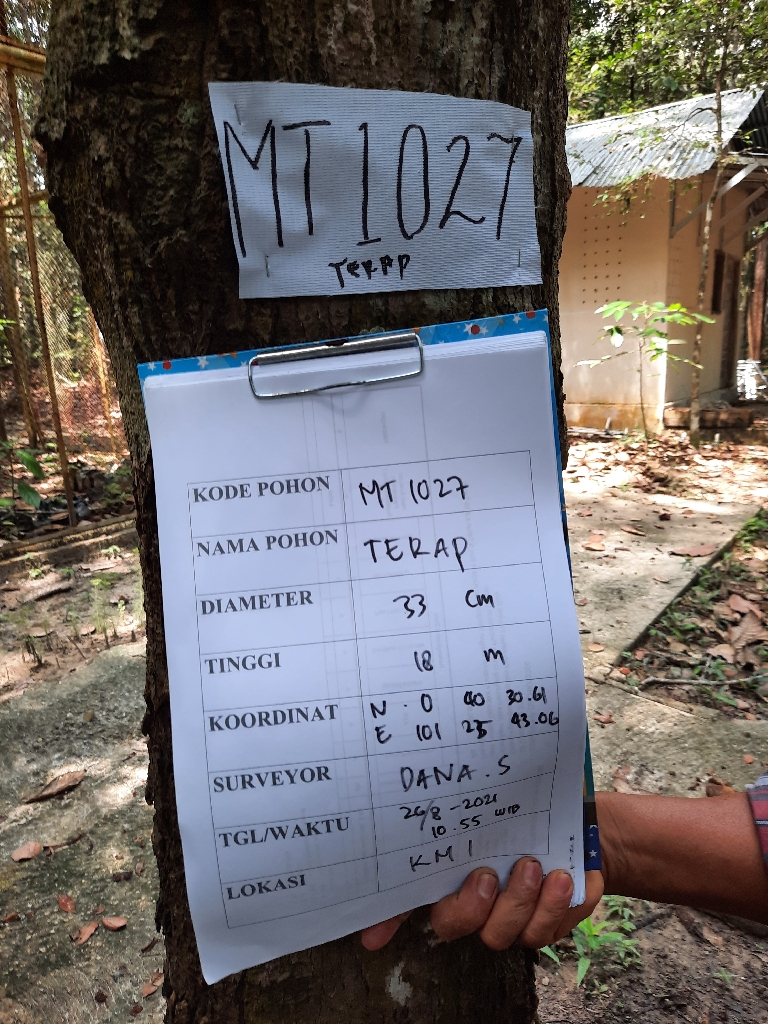 MT 1027
TERAP
KODE POHON MT 1027
NAMA POHON TERAP
DIAMETER 33 Cm
TINGGI 18 m
KOORDINAT N . 0 40 30.61
E 101 25 43.06
SURVEYOR DANA . S
TGL/WAKTU 26/8 - 2021
10.55 WIB
LOKASI KM 1